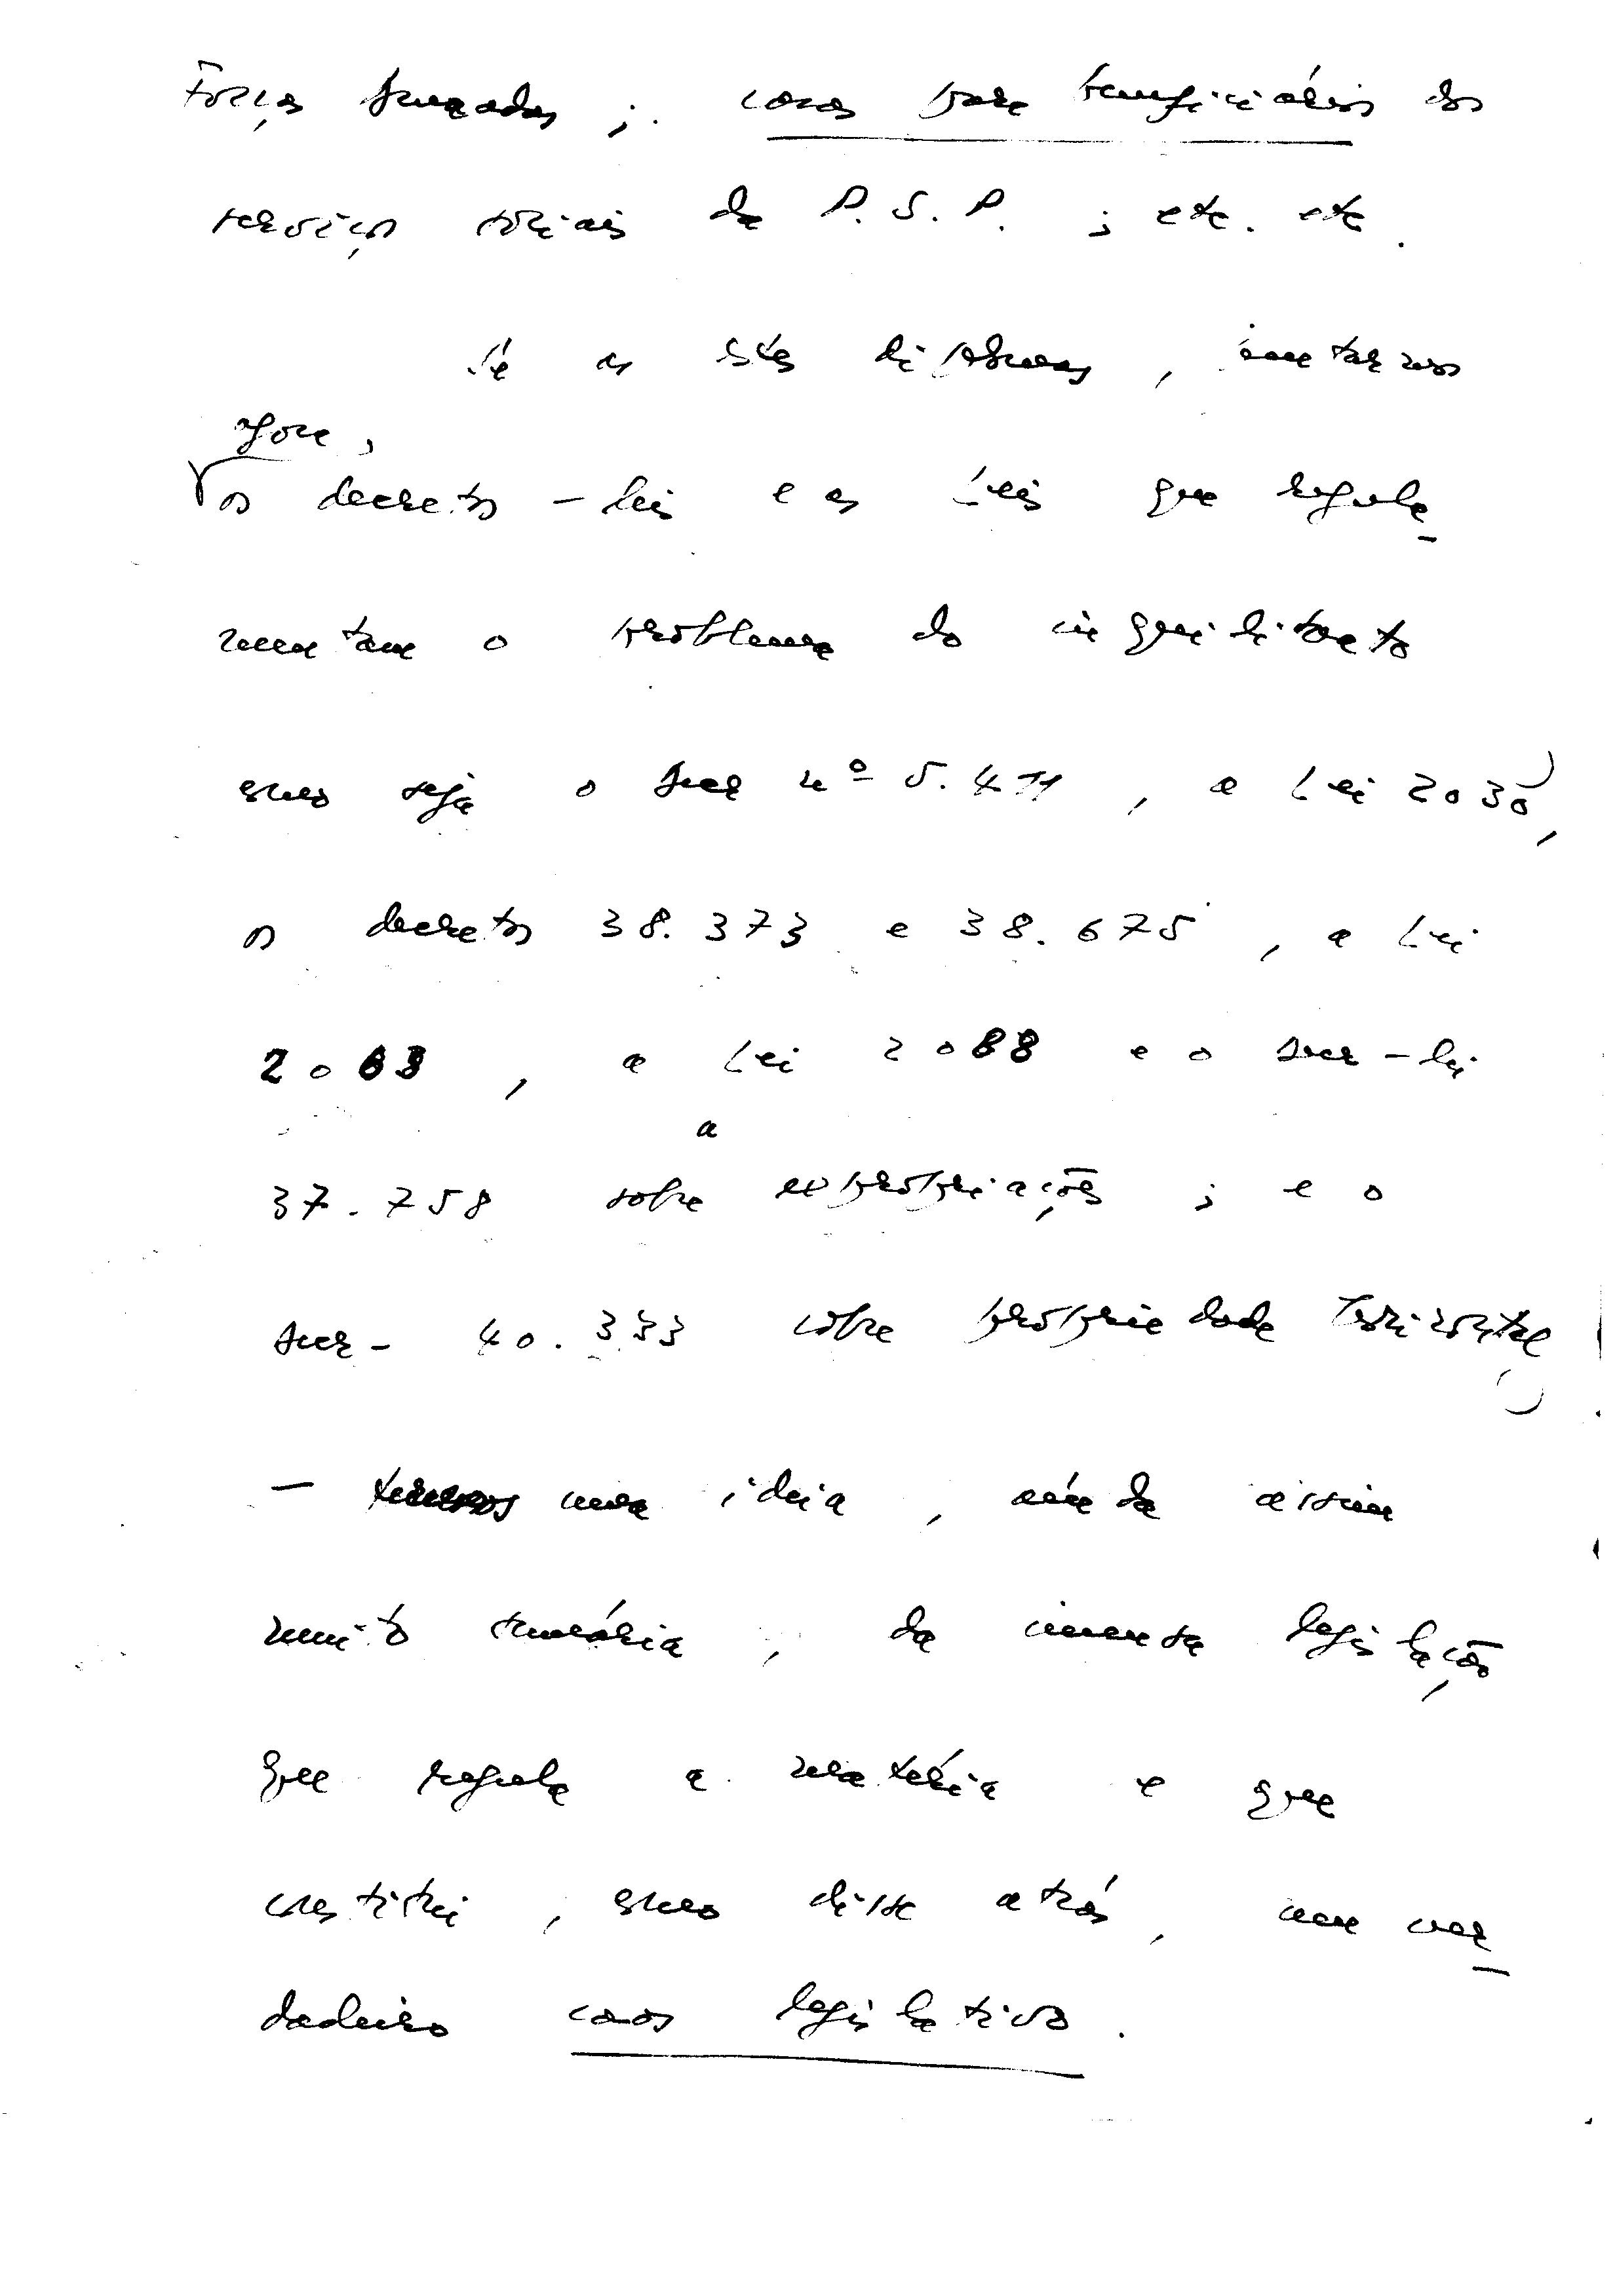 Forças Armadas; casas para beneficiários dos
serviços sociais da P.S.P.; etc. etc.
Se a estes diplomas, juntarmos
agora,
os decretos-leis e as Leis que regula-
mentam o problema do inquilinato
como seja o decr nº 5.411, a Lei 2030,
os decretos 38.373 e 38.675, a Lei
2063, a Lei 2088 e o decr-lei
a
37.758 sobre expropriações; e o
decr- 40.333 sobre propriedade horizontal
- teremos uma ideia, ainda assim
muito sumária, da imensa legislação
que regula a matéria e que
constitui, como disse atrás, um ver-
dadeiro caos legislativo.